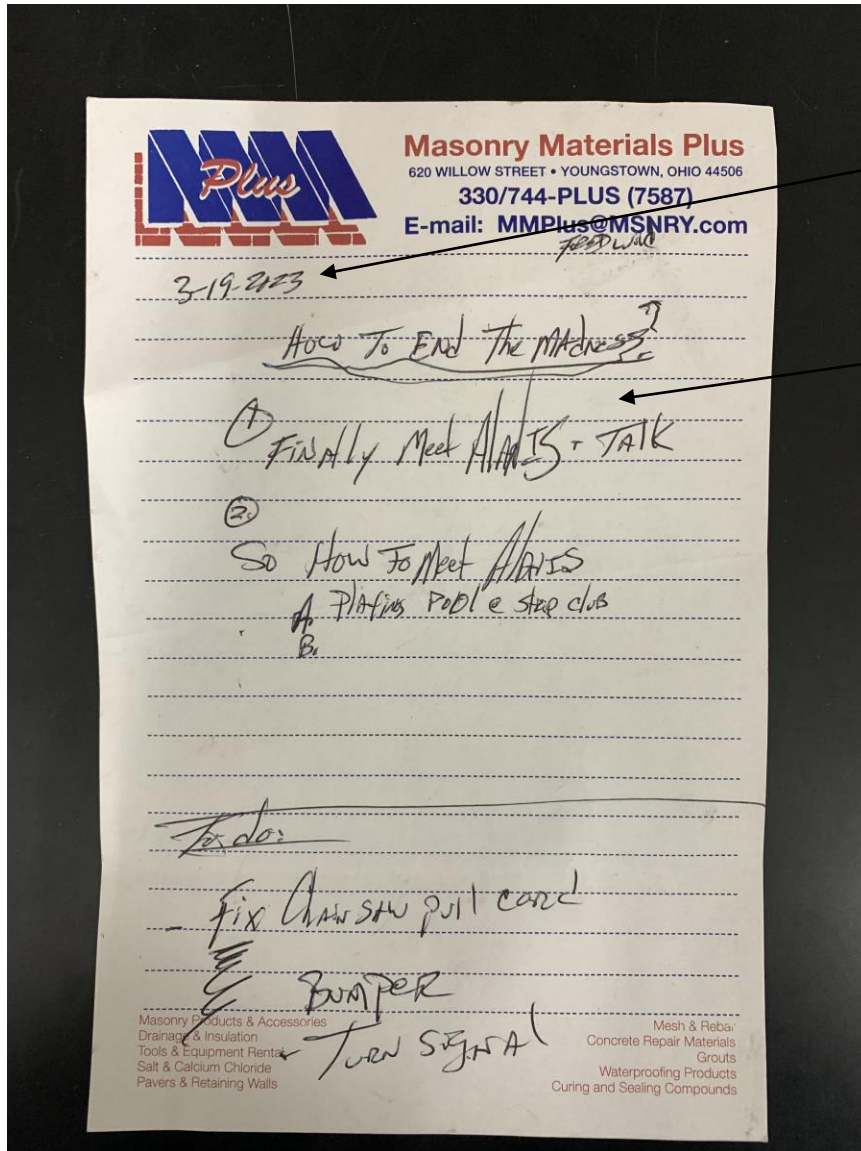 Plus
Masonry Materials Plus
620 WILLOW STREET • YOUNGSTOWN, OHIO 44506
330/744-PLUS (7587)
E-mail: MMPlus@MSNRY.com
3-19-2023
How To End The MAdness?
1
FiNAlly Meet AlANIS + TAlK
2.
So How To Meet AlANIS
A. PlAying POOl @ strip club
B.
To do:
- Fix ChAiNSAW pull cord
BUMPER
- TURN SigNAl
Masonry Products & Accessories
Drainage & Insulation
Tools & Equipment Rental
Salt & Calcium Chloride
Pavers & Retaining Walls
Mesh & Rebar
Concrete Repair Materials
Grouts
Waterproofing Products
Curing and Sealing Compounds